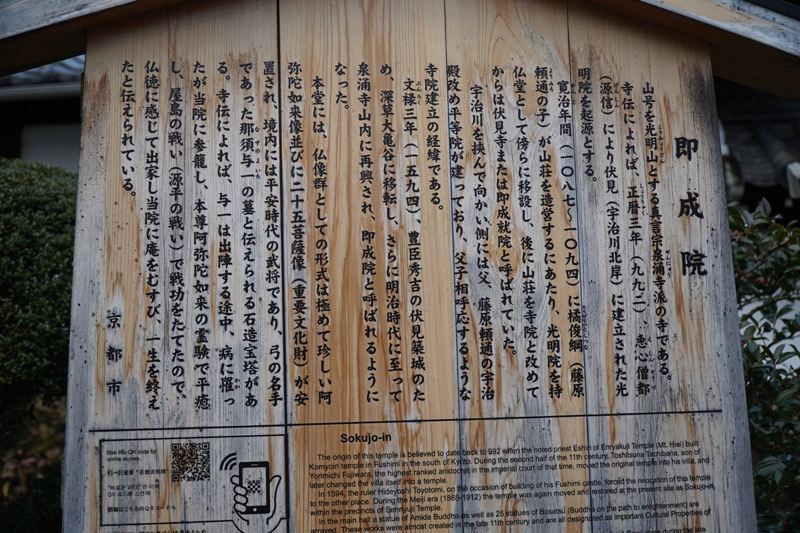 即成院
山号を光明山とする真言宗泉涌寺派の寺である。
寺伝によれば、正暦三年(九九二)、恵心僧都
(源信)により伏見(宇治川北岸)に建立された光
明院を起源とする。
寛治年間(一〇八七~一〇九四)に橘俊綱(藤原
頼通の子)が山荘を造営するにあたり、光明院を持
仏堂として傍らに移設し、後に山荘を寺院と改めて
からは伏見寺または即成就院と呼ばれていた。
宇治川を挟んで向かい側には父、藤原頼通の宇治
殿改め平等院が建っており、父子相呼応するような
寺院建立の経緯である。
文禄三年(一五九四)、豊臣秀吉の伏見築城のた
め、深草大亀谷に移転し、さらに明治時代に至って
泉涌寺山内に再興され、即成院と呼ばれるように
なった。
本堂には、仏像群としての形式は極めて珍しい阿
弥陀如来像並びに二十五菩薩像(重要文化財)が安
置され、境内には平安時代の武将であり、弓の名手
であった那須与一の墓と伝えられる石造宝塔があ
る。寺伝によれば、与一は出陣する途中、病に罹っ
たが当院に参籠し、本尊阿弥陀如来の霊験で平癒
し、屋島の戦い(源平の戦い)で戦功をたてたので、
仏徳に感じて出家し当院に庵をむすび、一生を終え
たと伝えられている。
京都市
Sokujo-in
The origin of this temple is believed to date back to 992 when the noted priest Eshin of Enryakuji Temple (Mt. Hiei) built
Komyoin temple in Fushimi in the south of Kyoto. During the second half of the 11th century, Toshitsuna Tachibana, son of
Yorimichi Fujiwara, the highest ranked aristocrat in the imperial court of that time, moved the original temple into his villa, and
later changed the villa itself into a temple.
In 1594, the ruler Hideyoshi Toyotomi, on the occasion of building of his Fushimi castle, forced the relocation of this temple
to the other place. During the Meiji era (1868-1912) the temple was again moved and restored at the present site as Sokujo-in,
within the precincts of Sennyuji Temple.
In the main hall a statue of Amida Buddha as well as 25 statues of Bosatsu (Buddha on the path to enlightenment) are
arrayed. These works were almost created in the late 11th century and are all designated as Important Cultural Properties of
Use this QR code for